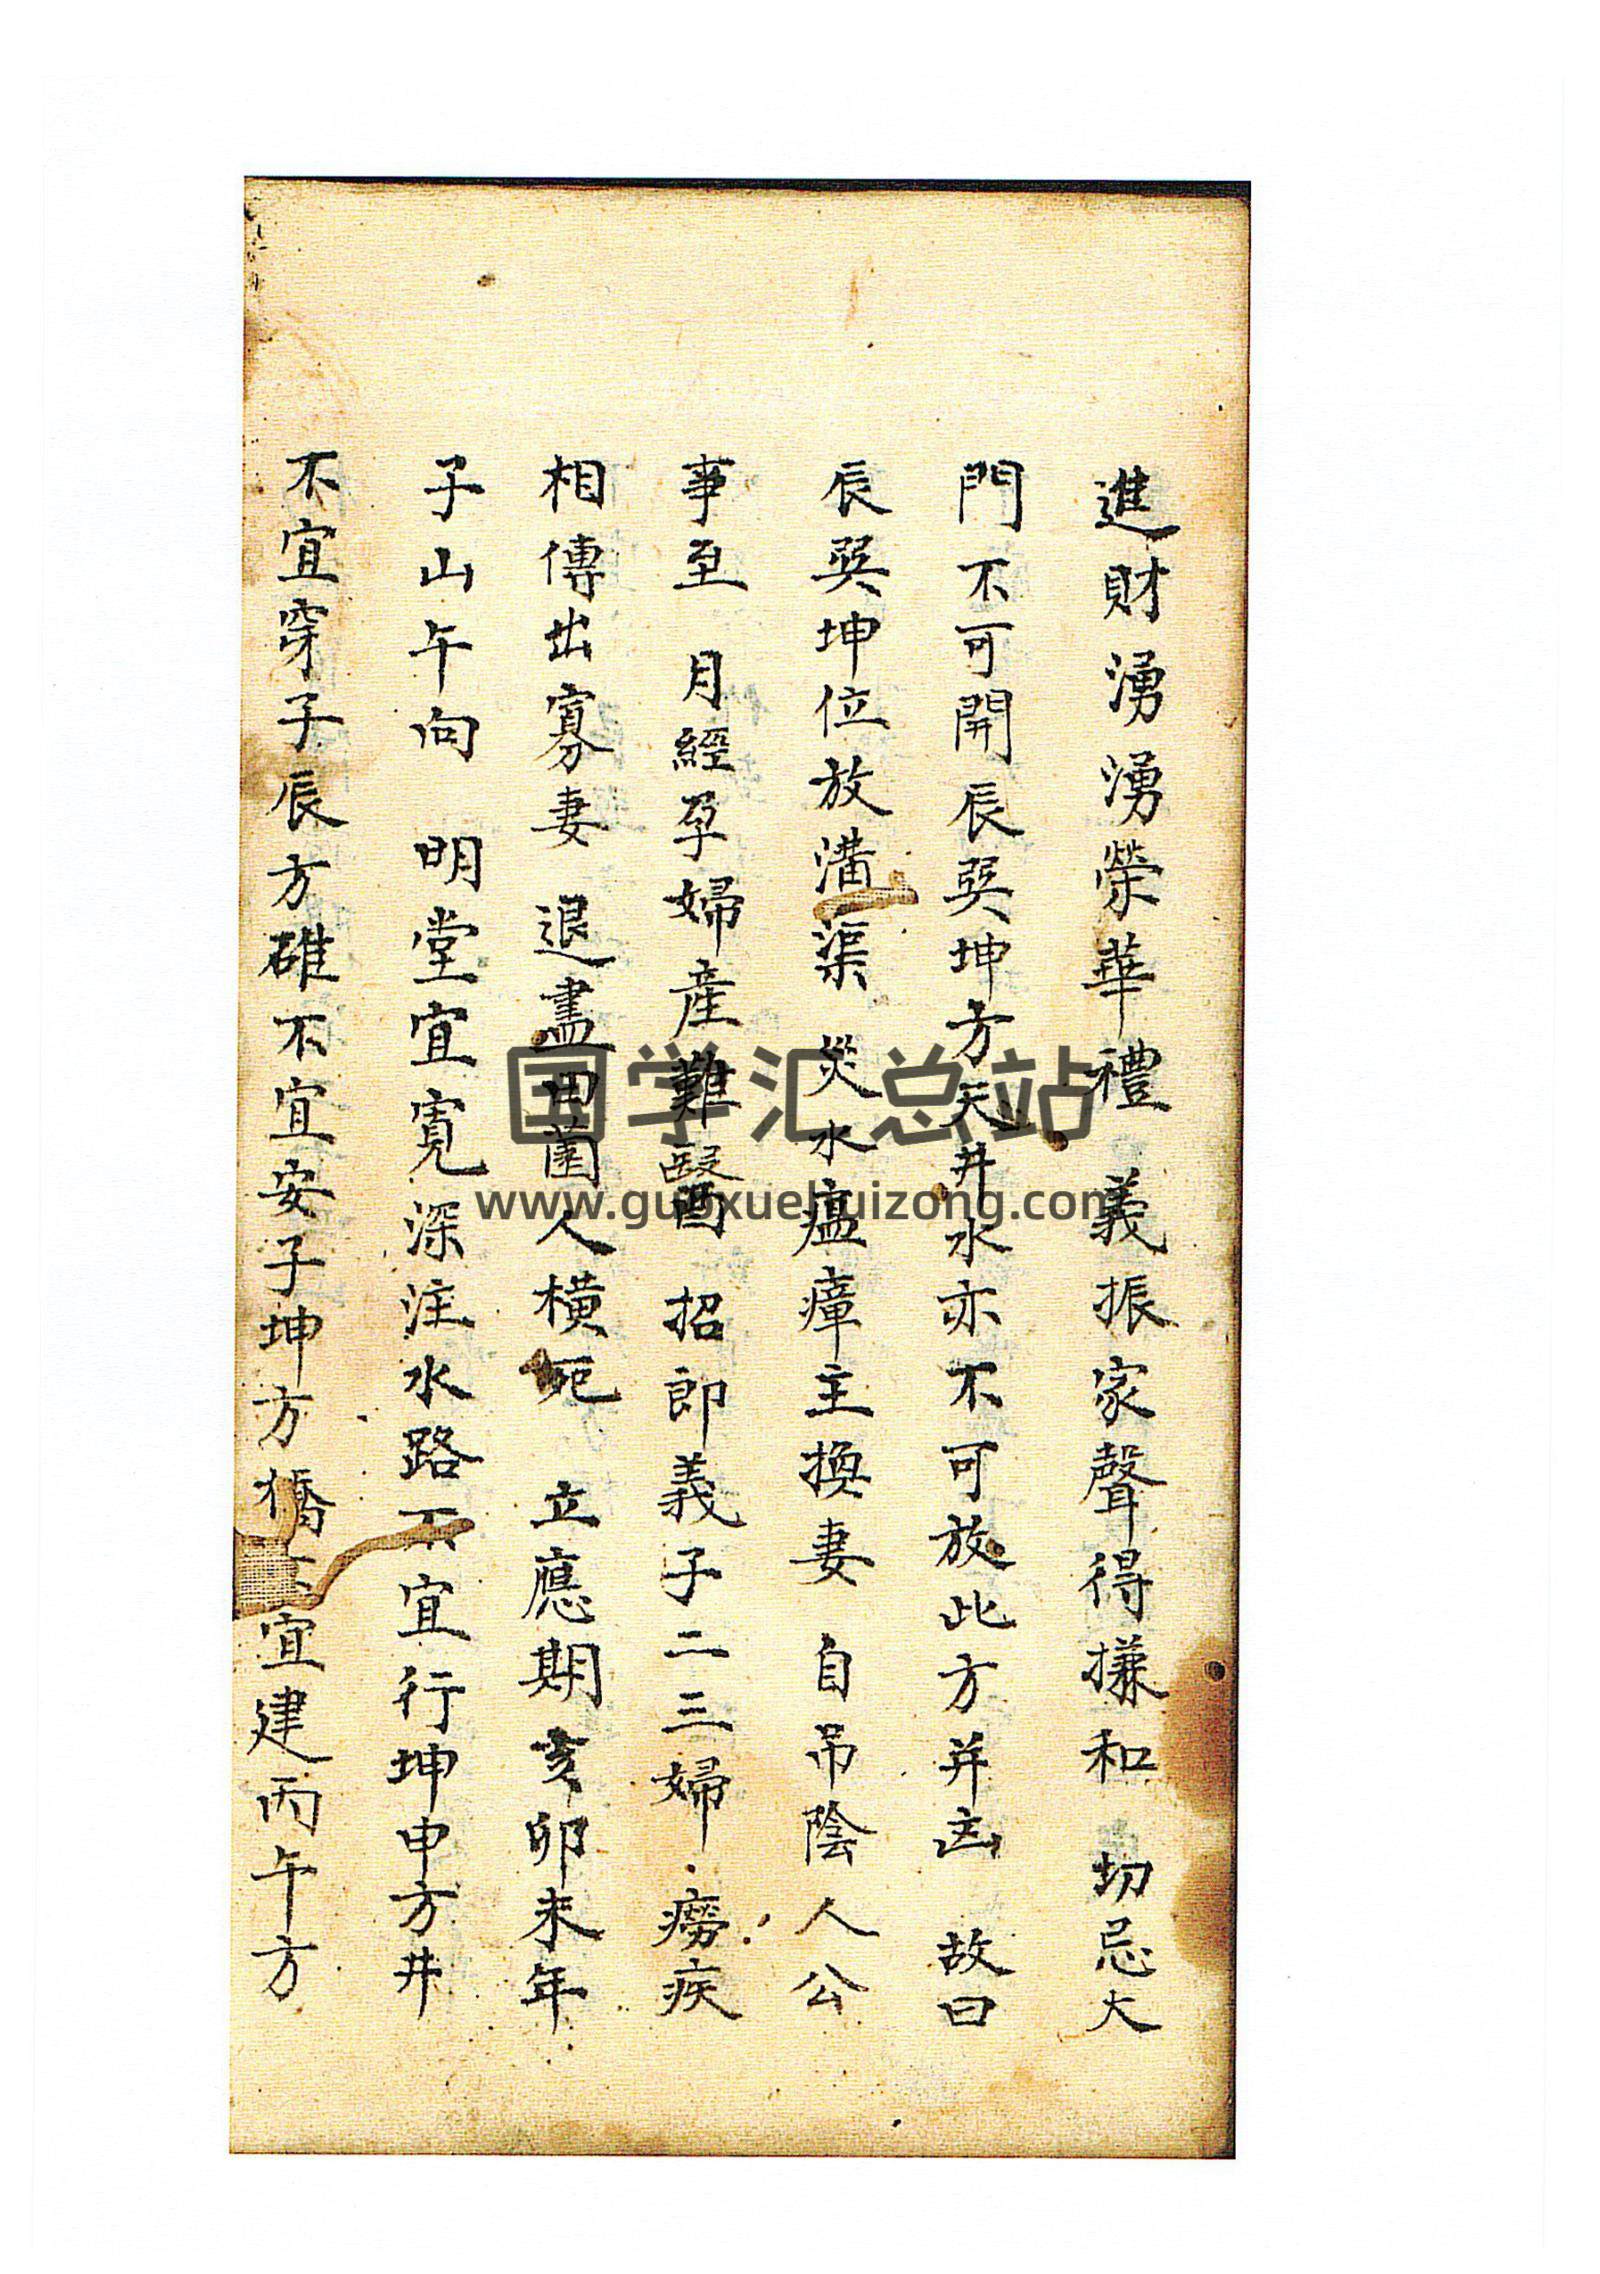 進財湧湧榮華禮 義振家聲得㨿和 切忌大
門不可開辰巽坤方天井水亦不可放此方并凶 故曰
辰巽坤位放溝渠 災水瘟瘴主換妻 自吊陰人公
事至 月經孕婦產難醫 招郎義子二三婦 癆疾
相傳出寡妻 退盡田園人橫死 立應期亥卯未年
子山午向 明堂宜寬深注水路不宜行坤申方井
不宜穿子辰方碓不宜安子坤方 宜建丙午方
国学汇总站
www.guoxuehuizong.com